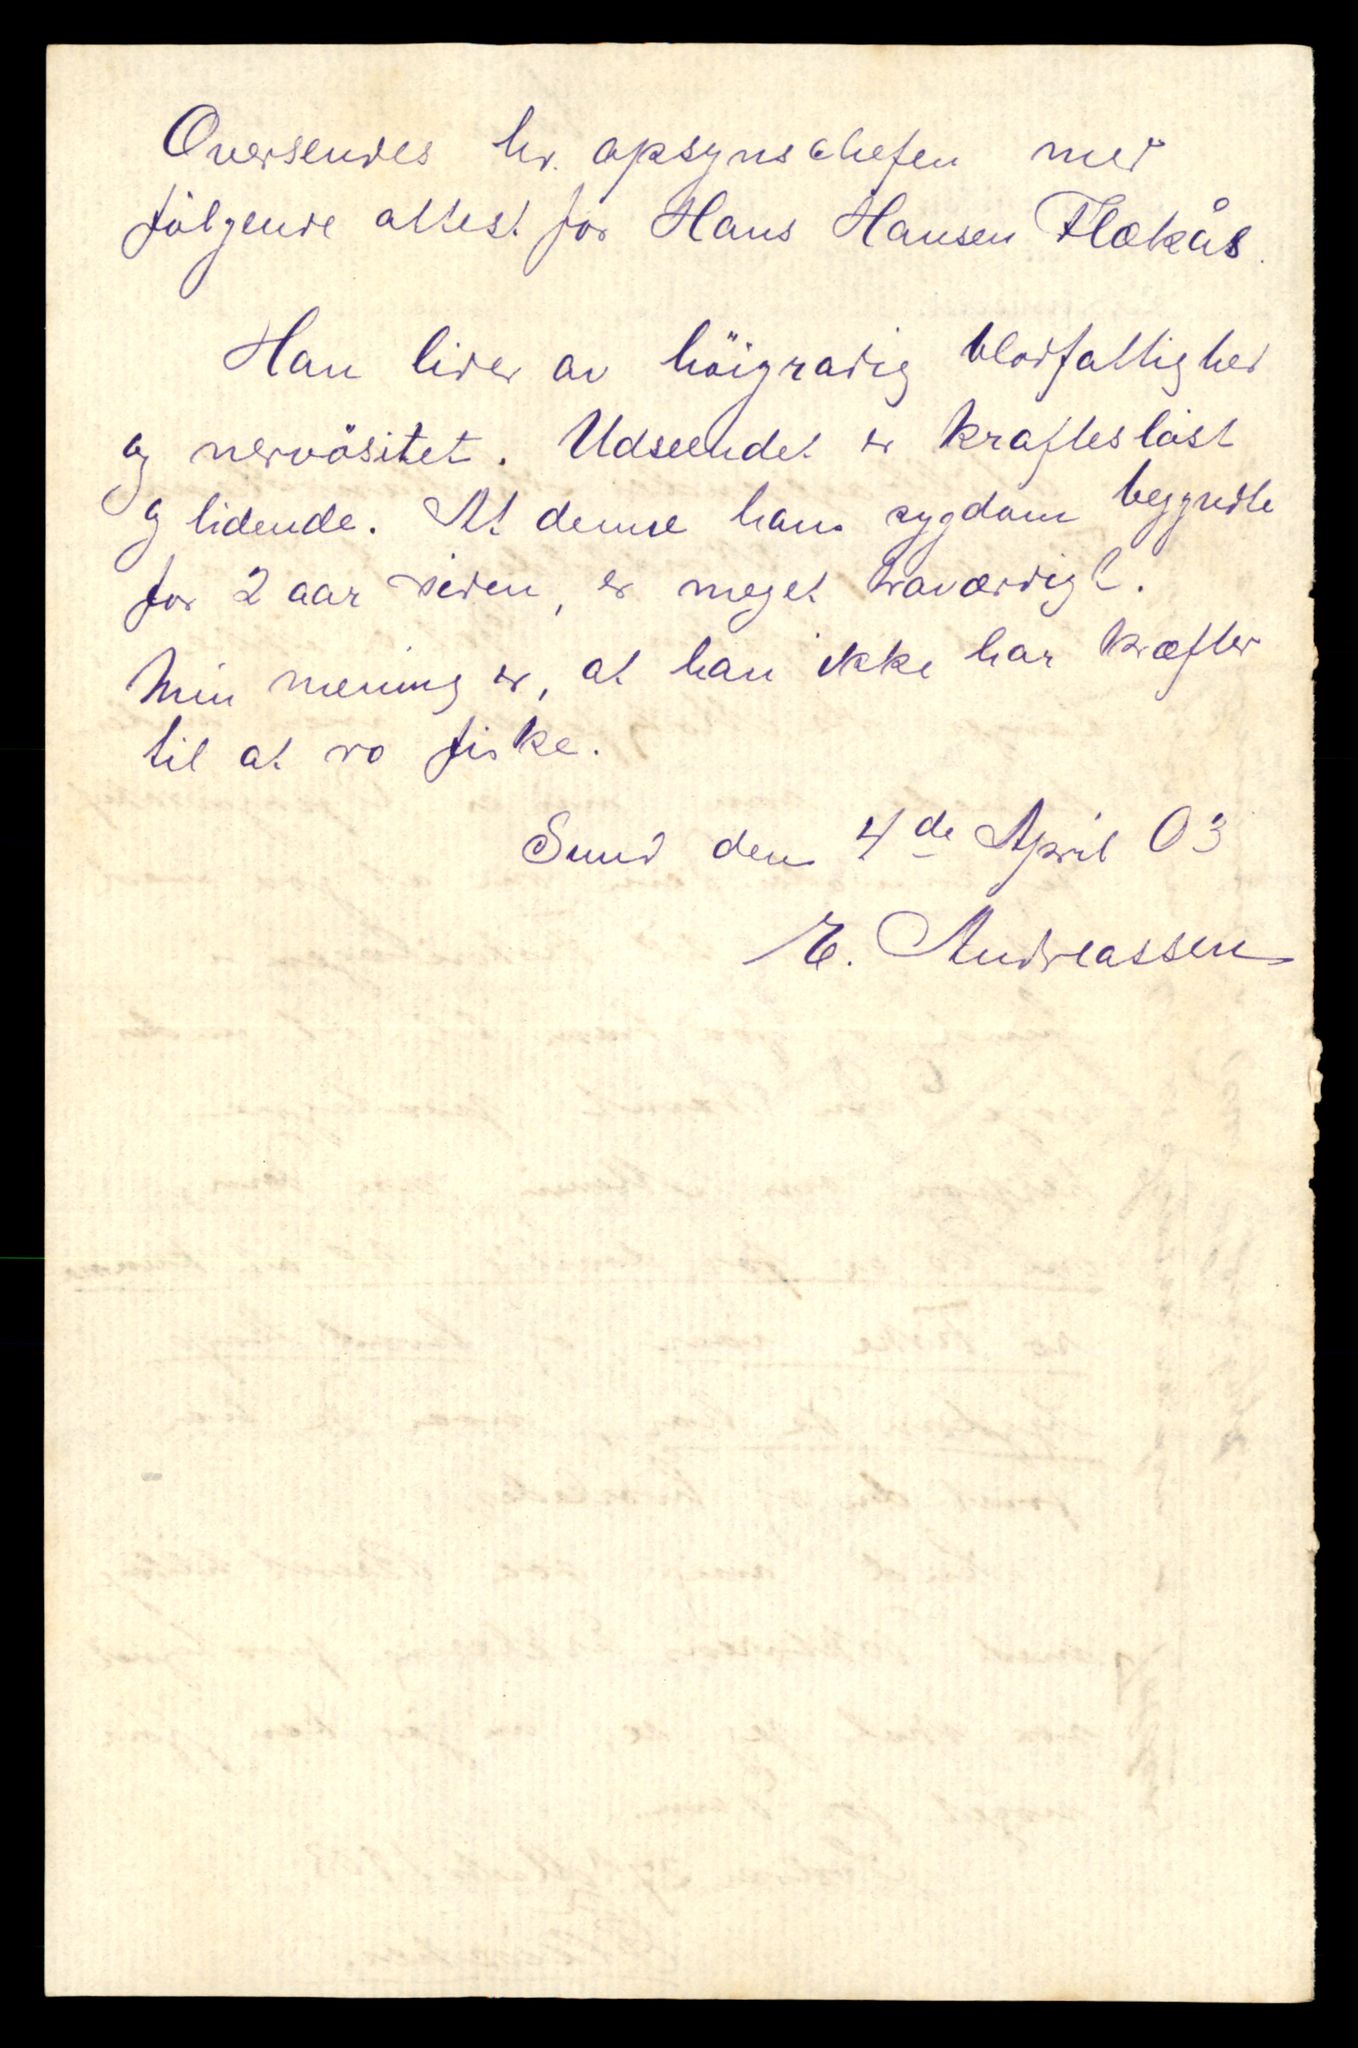 Oversendes hr. opsynschefen med
følgende attest for Hans Hansen Flækås.
Han lider av höigradig blodfattighed
og nervösitet. Udseendet er kraftesløst
og lidende. At denne hans sygdom begyndte
for 2 aar siden, er meget troværdigt.
Min mening er, at han ikke har kræfter
til at ro fiske.
Sund den 4de April 03
E. Andreassen